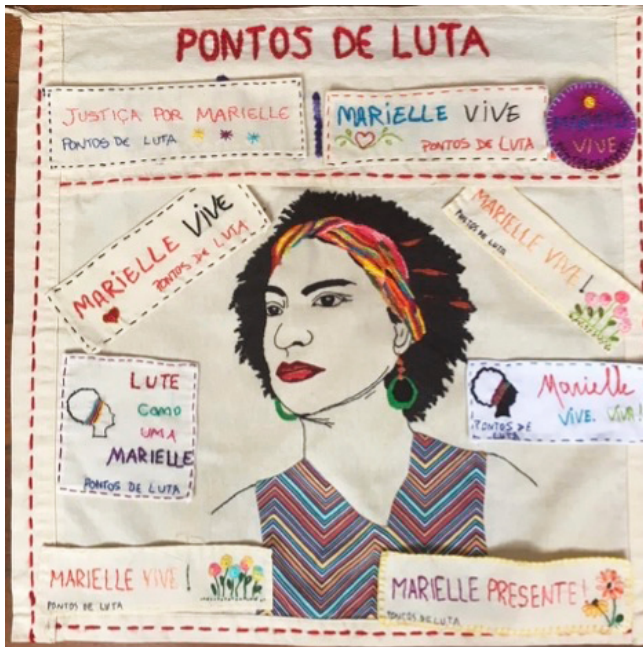 PONTOS DE LUTA
JUSTIÇA POR MARIELLE
PONTOS DE LUTA
MARIELLE VIVE
PONTOS DE LUTA
VIVE
MARIELLE VIVE
PONTOS DE LUTA
MARIELLE VIVE!
PONTOS DE LUTA
LUTE
COMO
UMA
MARIELLE
PONTOS DE LUTA
Marielle
VIVE. VIVA!
PONTOS DE
LUTA
MARIELLE VIVE!
PONTOS DE LUTA
MARIELLE PRESENTE!
PONTOS DE LUTA